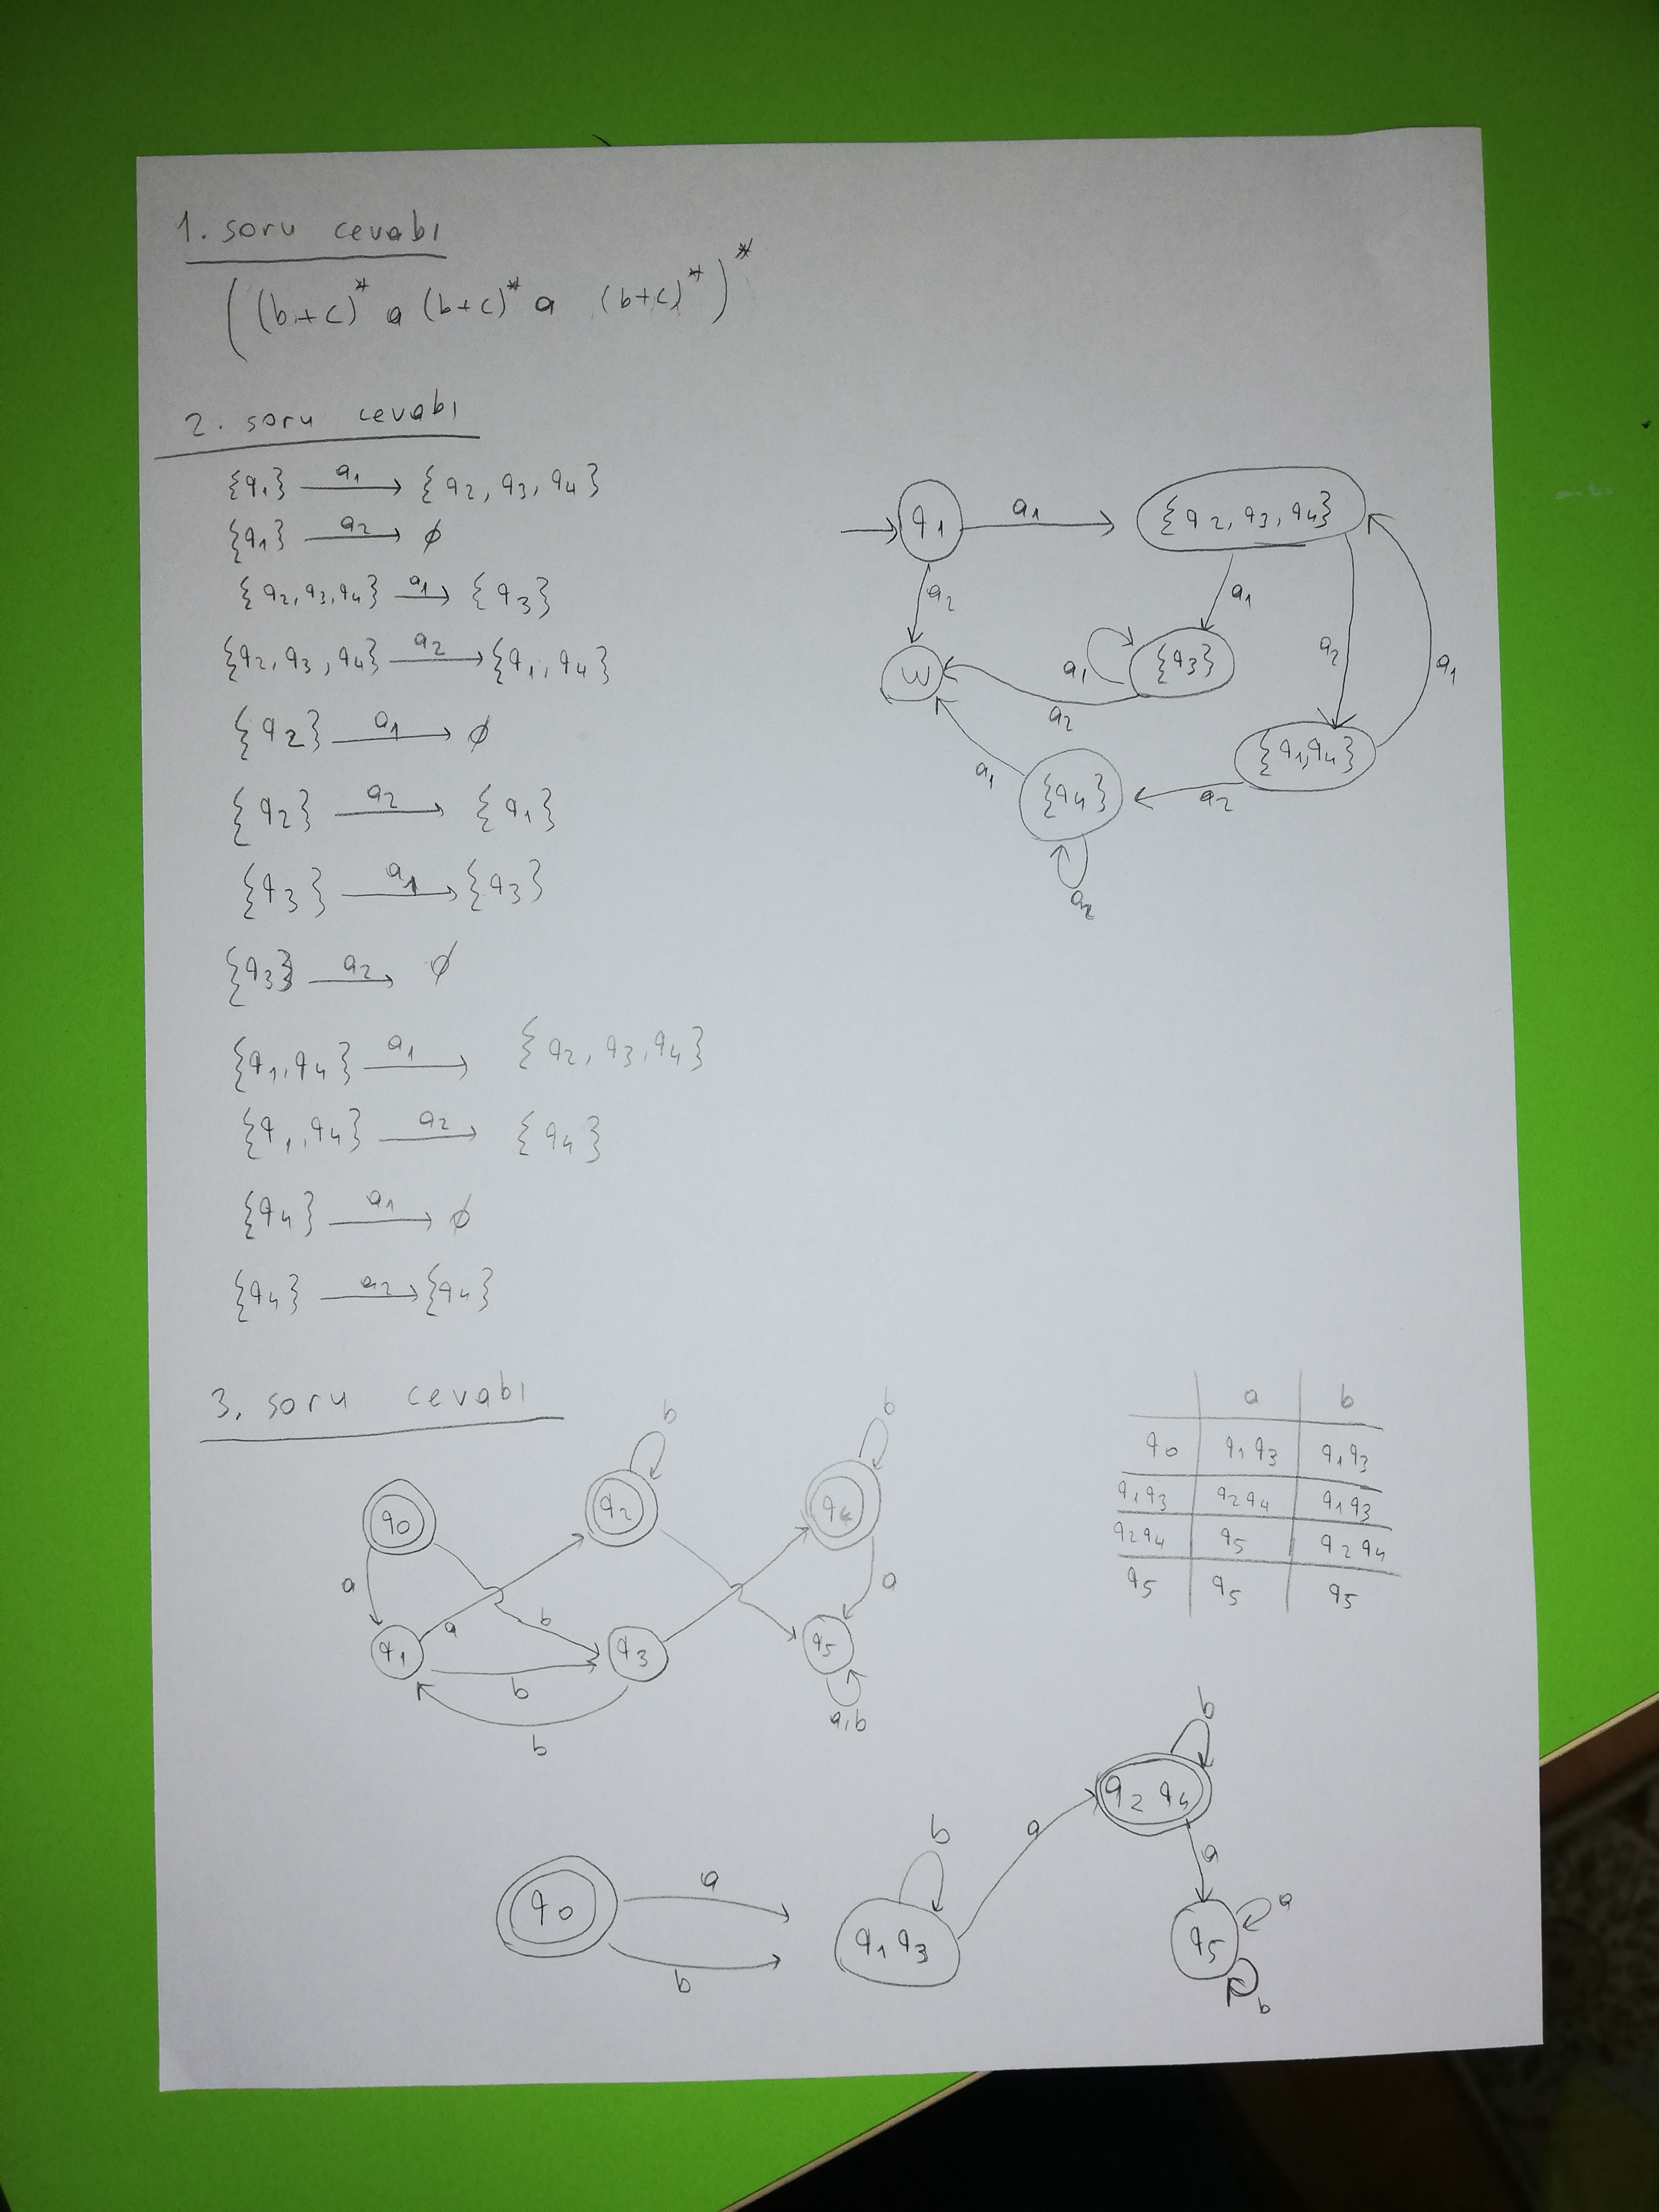 1. soru cevabı
((b+c)* a (b+c)* a (b+c)*)*
2. soru cevabı
{q1} a1→ {q2, q3, q4}
{q1} a2→ ∅
{q2, q3, q4} a1→ {q3}
{q2, q3, q4} a2→ {q1, q4}
{q2} a1→ ∅
{q2} a2→ {q1}
{q3} a1→ {q3}
{q3} a2→ ∅
{q1, q4} a1→ {q2, q3, q4}
{q1, q4} a2→ {q4}
{q4} a1→ ∅
{q4} a2→ {q4}
q1 a1 {q2, q3, q4}
a2 a1
w a1 {q3} a2 a1
a2
a1 {q4} a2 {q1, q4}
a2
3. soru cevabı
b b
q0 q2 q4
a a b a
q1 b q3 q5
b a,b
a b
q0 q1q3 q1q3
q1q3 q2q4 q1q3
q2q4 q5 q2q4
q5 q5 q5
b
q2 q4
a b a a
q0 q1 q3 q5
b b